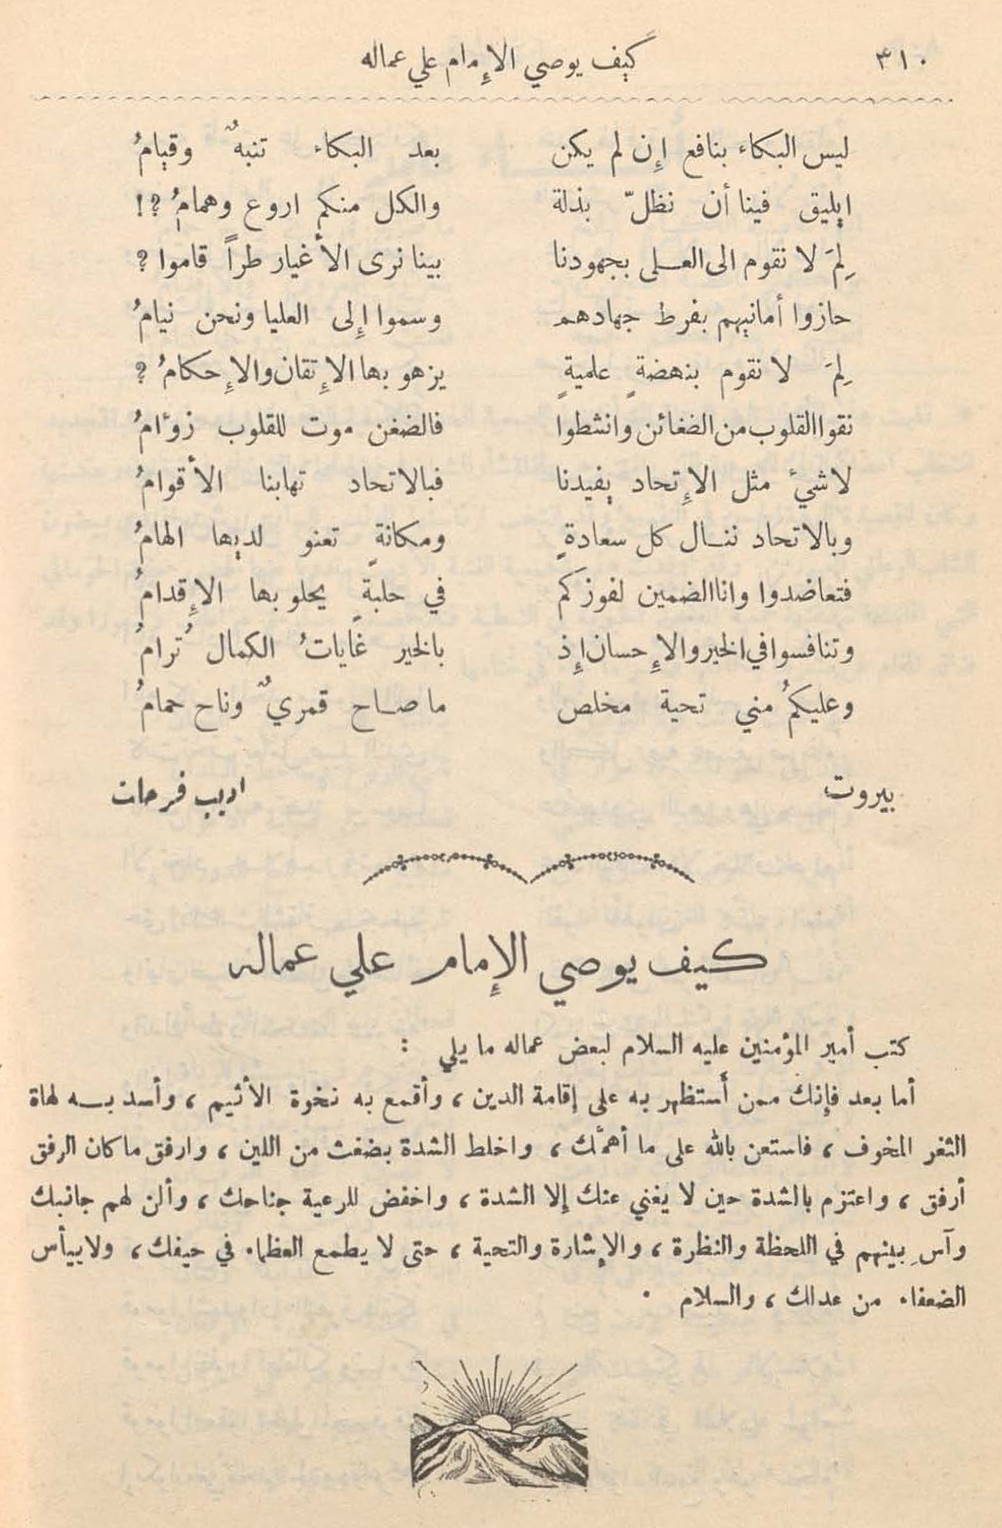 ٣١٠ كيف يوصي الإمام علي عماله
ليس البكاء بنافع إِن لم يكن بعد البكاء تنبهٌ وقيامُ
ايليق فينا أن نظلّ بذلة والكل منكم اروع وهمامُ؟!
لِمَ لا نقوم الى العلى بجهودنا بينا نرى الأغيار طراً قاموا؟
حازوا أمانيهم بفرط جهادهم وسموا إِلى العليا ونحن نيامُ
لِمَ لا نقوم بنهضةٍ علميةٍ يزهو بها الإِتقان والإِحكامُ؟
نقوا القلوب من الضغائن وانشطوا فالضغن موت للقلوب زوٴامُ
لا شيٴ مثل الإِتحاد يفيدنا فبالاتحاد تهابنا الأقوامُ
وبالاتحاد ننال كل سعادةٍ ومكانةٍ تعنو لديها الهامُ
فتعاضدوا وانا الضمين لفوزكم في حلبةٍ يحلو بها الإِقدامُ
وتنافسوا في الخير والإِحسان إِذ بالخير غاياتُ الكمال تُرامُ
وعليكمُ مني تحية مخلص ما صاح قمريٌ وناح حمامُ
بيروت اديب فرحات
كيف يوصي الإِمام علي عماله
كتب أمير المؤمنين عليه السلام لبعض عماله ما يلي :
أما بعد فإِنك ممن أَستظهر به على إقامة الدين، وأقمع به نخوة الأثيم، وأسد به لهاة
الثغر المخوف، فاستعن بالله على ما أهمَّك، واخلط الشدة بضغث من اللين، وارفق ما كان الرفق
أرفق، واعتزم بالشدة حين لا يغني عنك إلا الشدة، واخفض للرعية جناحك، وألن لهم جانبك
وآسِ بينهم في اللحظة والنظرة، والإشارة والتحية، حتى لا يطمع العظماء في حيفك، ولا ييأس
الضعفاء من عدلك، والسلام .